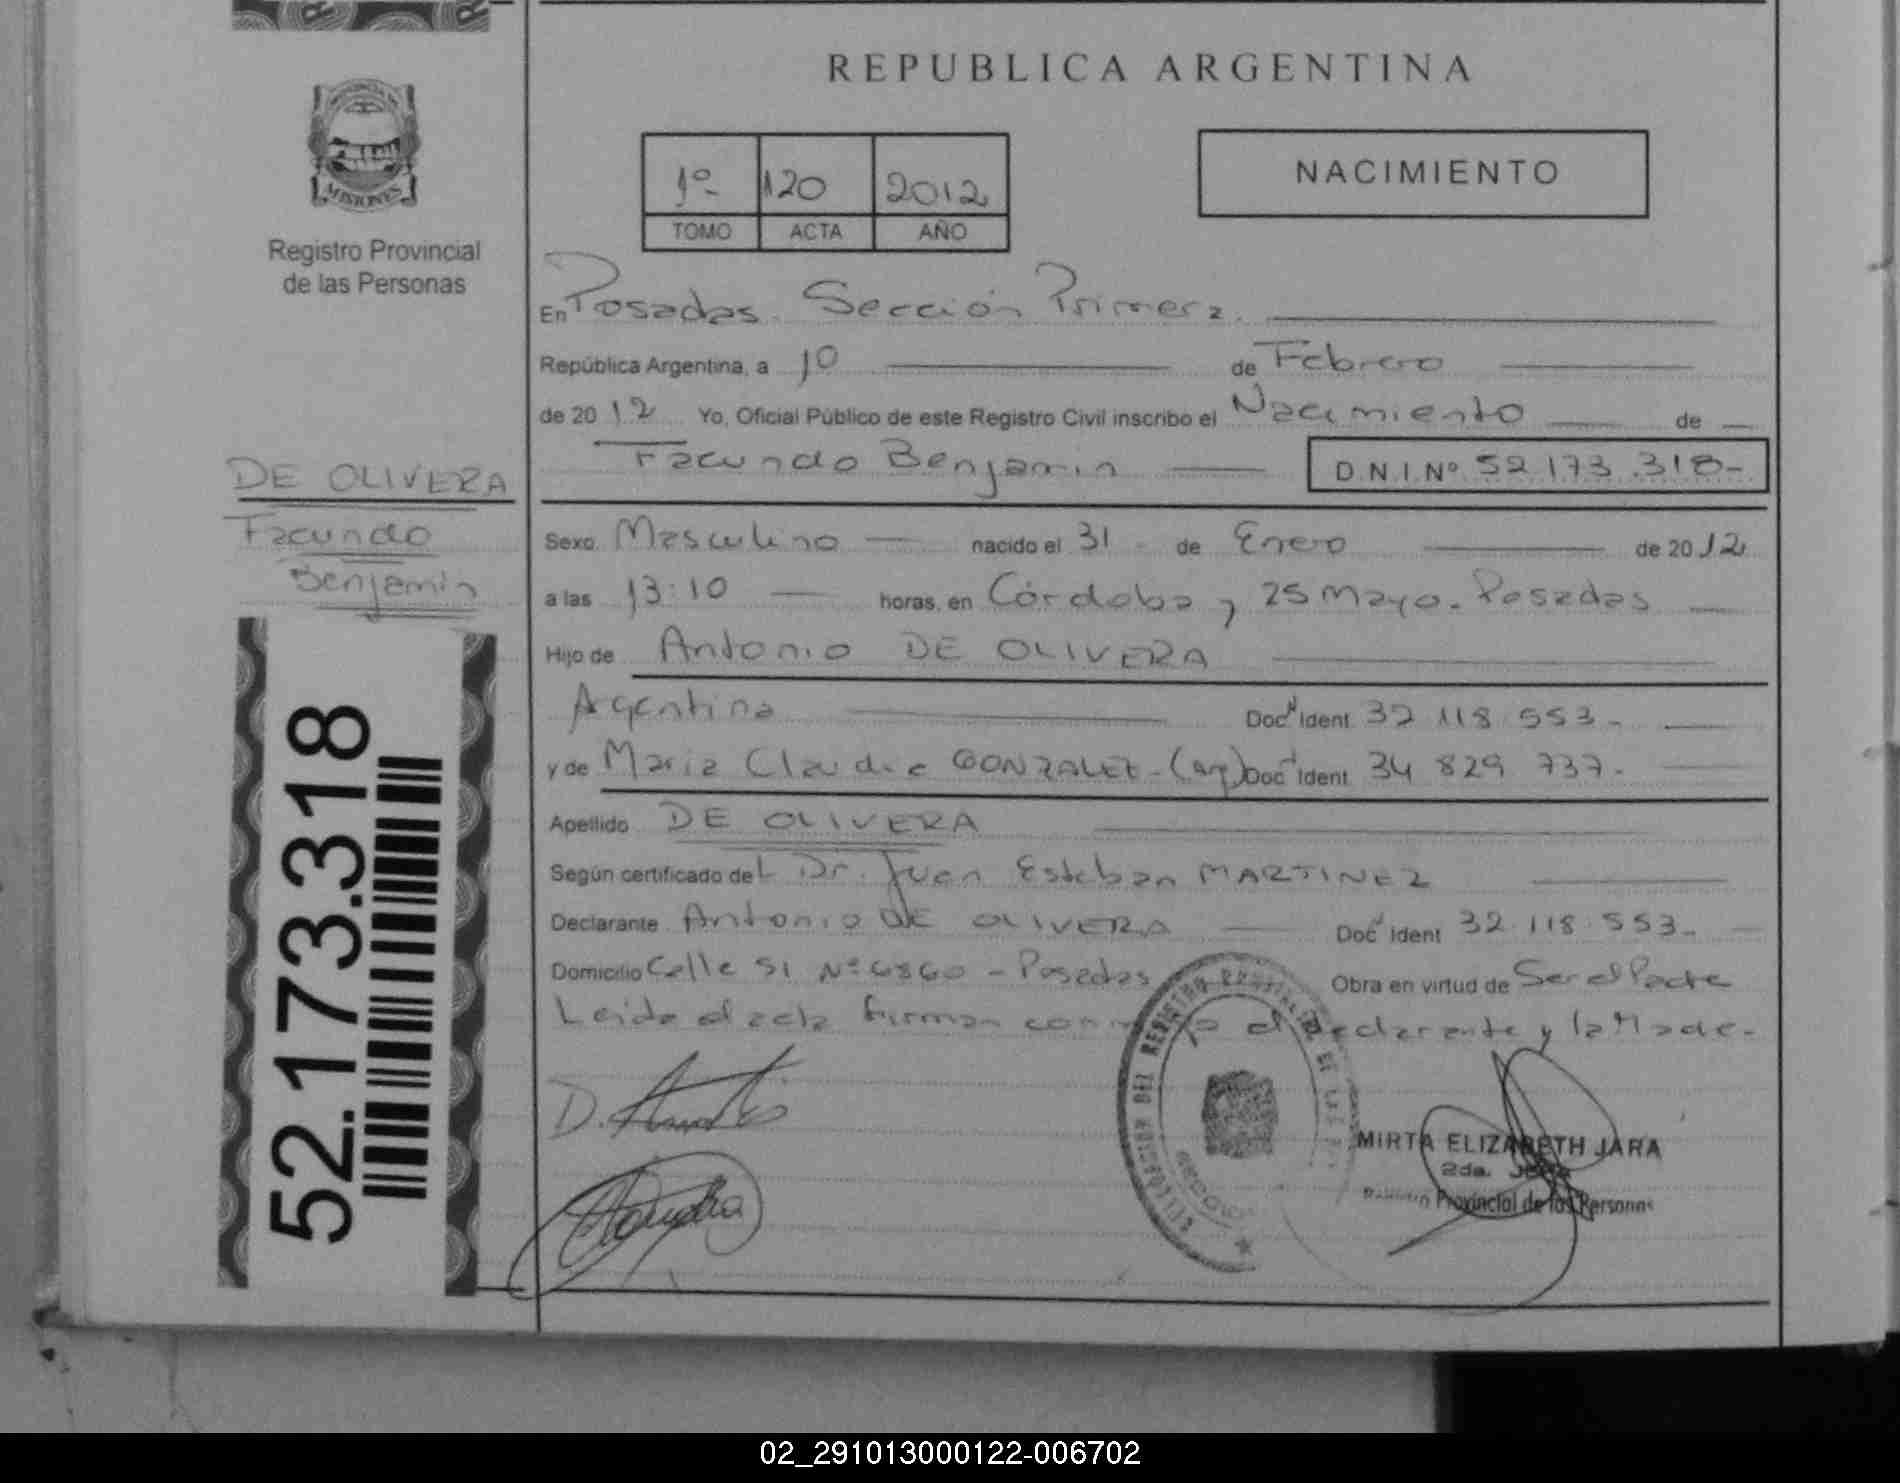 REPUBLICA ARGENTINA
PROVINCIA DE
MISIONES
Registro Provincial
de las Personas
1º 120 2012
TOMO ACTA AÑO
NACIMIENTO
En Posadas. Sección Primera.
República Argentina, a 10 de Febrero
de 2012 Yo, Oficial Público de este Registro Civil inscribo el Nacimiento de
Facundo Benjamin D.N.I. Nº 52.173.318-
DE OLIVERA
Facundo
Benjamin
Sexo Masculino nacido el 31 de Enero de 2012
a las 13:10 horas, en Córdoba y 25 Mayo. Posadas
Hijo de Antonio DE OLIVERA
Argentina Doc. Ident. 32.118.553-
y de Maria Claudia GONZALEZ - (arg) Doc. Ident. 34 829 737-
Apellido DE OLIVERA
Según certificado del Dr. Juan Esteban MARTINEZ
Declarante Antonio DE OLIVERA Doc. Ident 32.118.553-
Domicilio Calle Nº - Posadas Obra en virtud de Ser el Padre
Leida el acta firman conmigo el declarante y la Madre.
D.
Claudia
MIRTA ELIZABETH JARA
2da. Jefa
Registro Provincial de las Personas
52.173.318
02_291013000122-006702